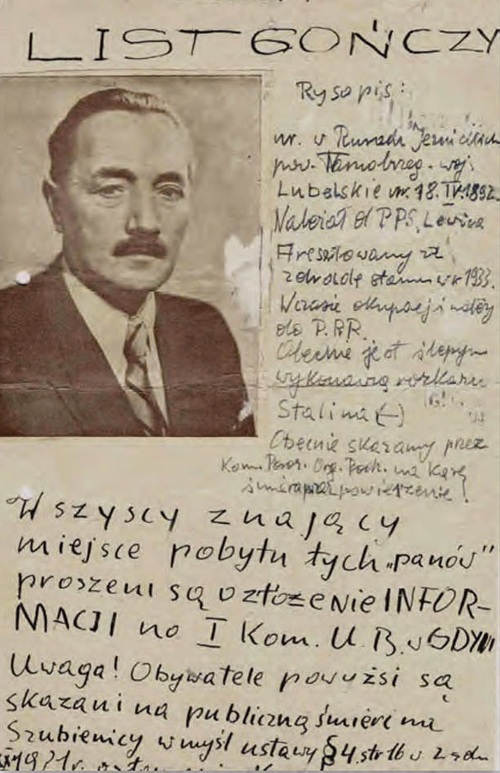 LIST GOŃCZY
Rysopis:
ur. w Rurach Jezuickich
pow. Tarnobrzeg. woj.
Lubelskie ur. 18.IV.1892.
Należał d PPS, Lewica
Aresztowany za
zdradę stanu w r 1933.
W czasie okupacji należy
do P.P.R.
Obecnie jest ślepym
wykonawcą rozkazu
Stalina (-)
Obecnie skazany przez
Kom. Org. na karę
śmierci przez powieszenie!
Wszyscy znający
miejsce pobytu tych „panów"
proszeni są o złożenie INFOR-
MACJI no I Kom. U.B. w GDYNI
Uwaga! Obywatele powyżsi są
skazani na publiczną śmierć na
Szubienicy w myśl ustawy § 4. str 16 v z